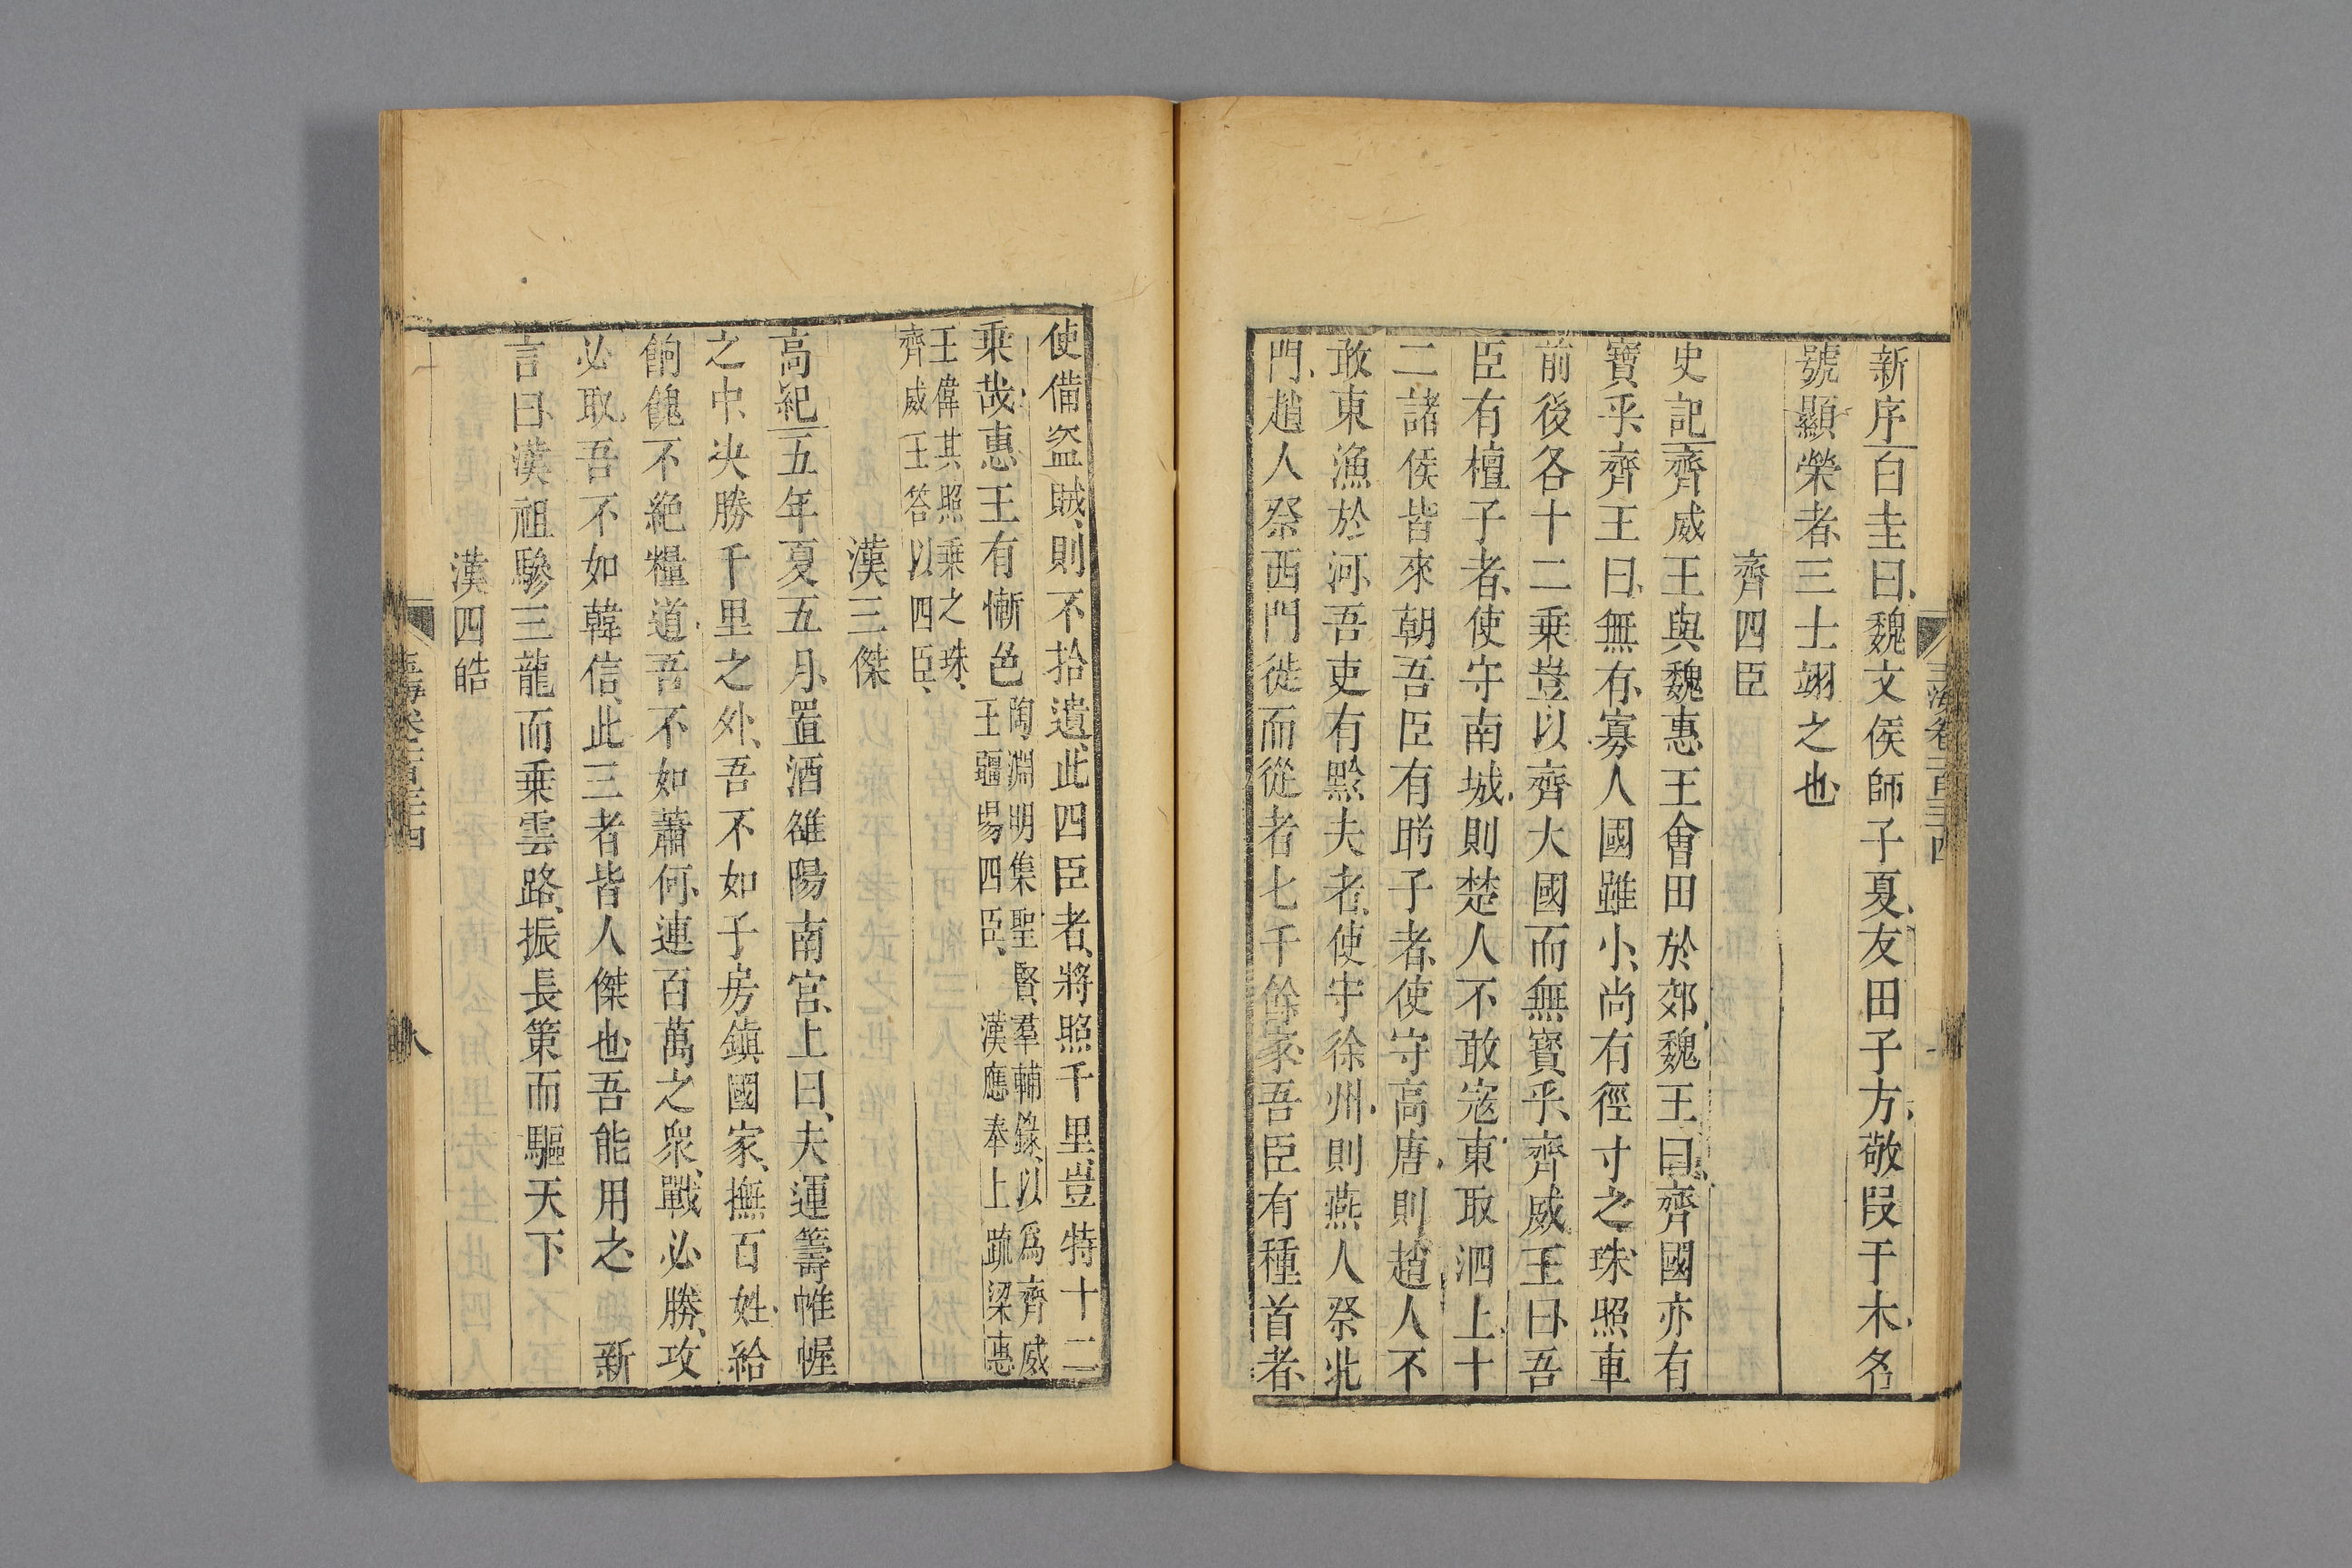 新序白圭曰魏文侯師子夏友田子方敬段干木名
號顯榮者三士翊之也
齊四臣
史記齊威王與魏惠王會田於郊魏王曰齊國亦有
寶乎齊王曰無有寡人國雖小尚有徑寸之珠照車
前後各十二乗豈以齊大國而無寳乎齊威王曰吾
臣有檀子者使守南城則楚人不敢寇東取泗上十
二諸侯皆來朝吾臣有盻子者使守高唐則趙人不
敢東漁於河吾吏有黔夫者使守徐州則燕人祭北
門趙人祭西門徙而從者七千餘家吾臣有種首者
使備盗賊則不拾遺此四臣者將照千里豈特十二
乗哉惠王有慚色
陶淵明集聖賢羣輔錄以爲齊威
王疆埸四臣 漢應奉上疏梁惠
王偉其照乗之珠
齊威王答以四臣
漢三傑
高紀五年夏五月置酒雒陽南宫上曰夫運籌帷幄
之中决勝千里之外吾不如子房鎮國家撫百姓給
餉餽不絶糧道吾不如蕭何連百萬之衆戰必勝攻
必取吾不如韓信此三者皆人傑也吾能用之 新
言曰漢祖驂三龍而乗雲路振長策而驅天下
漢四皓
玉海卷一百三十四
八